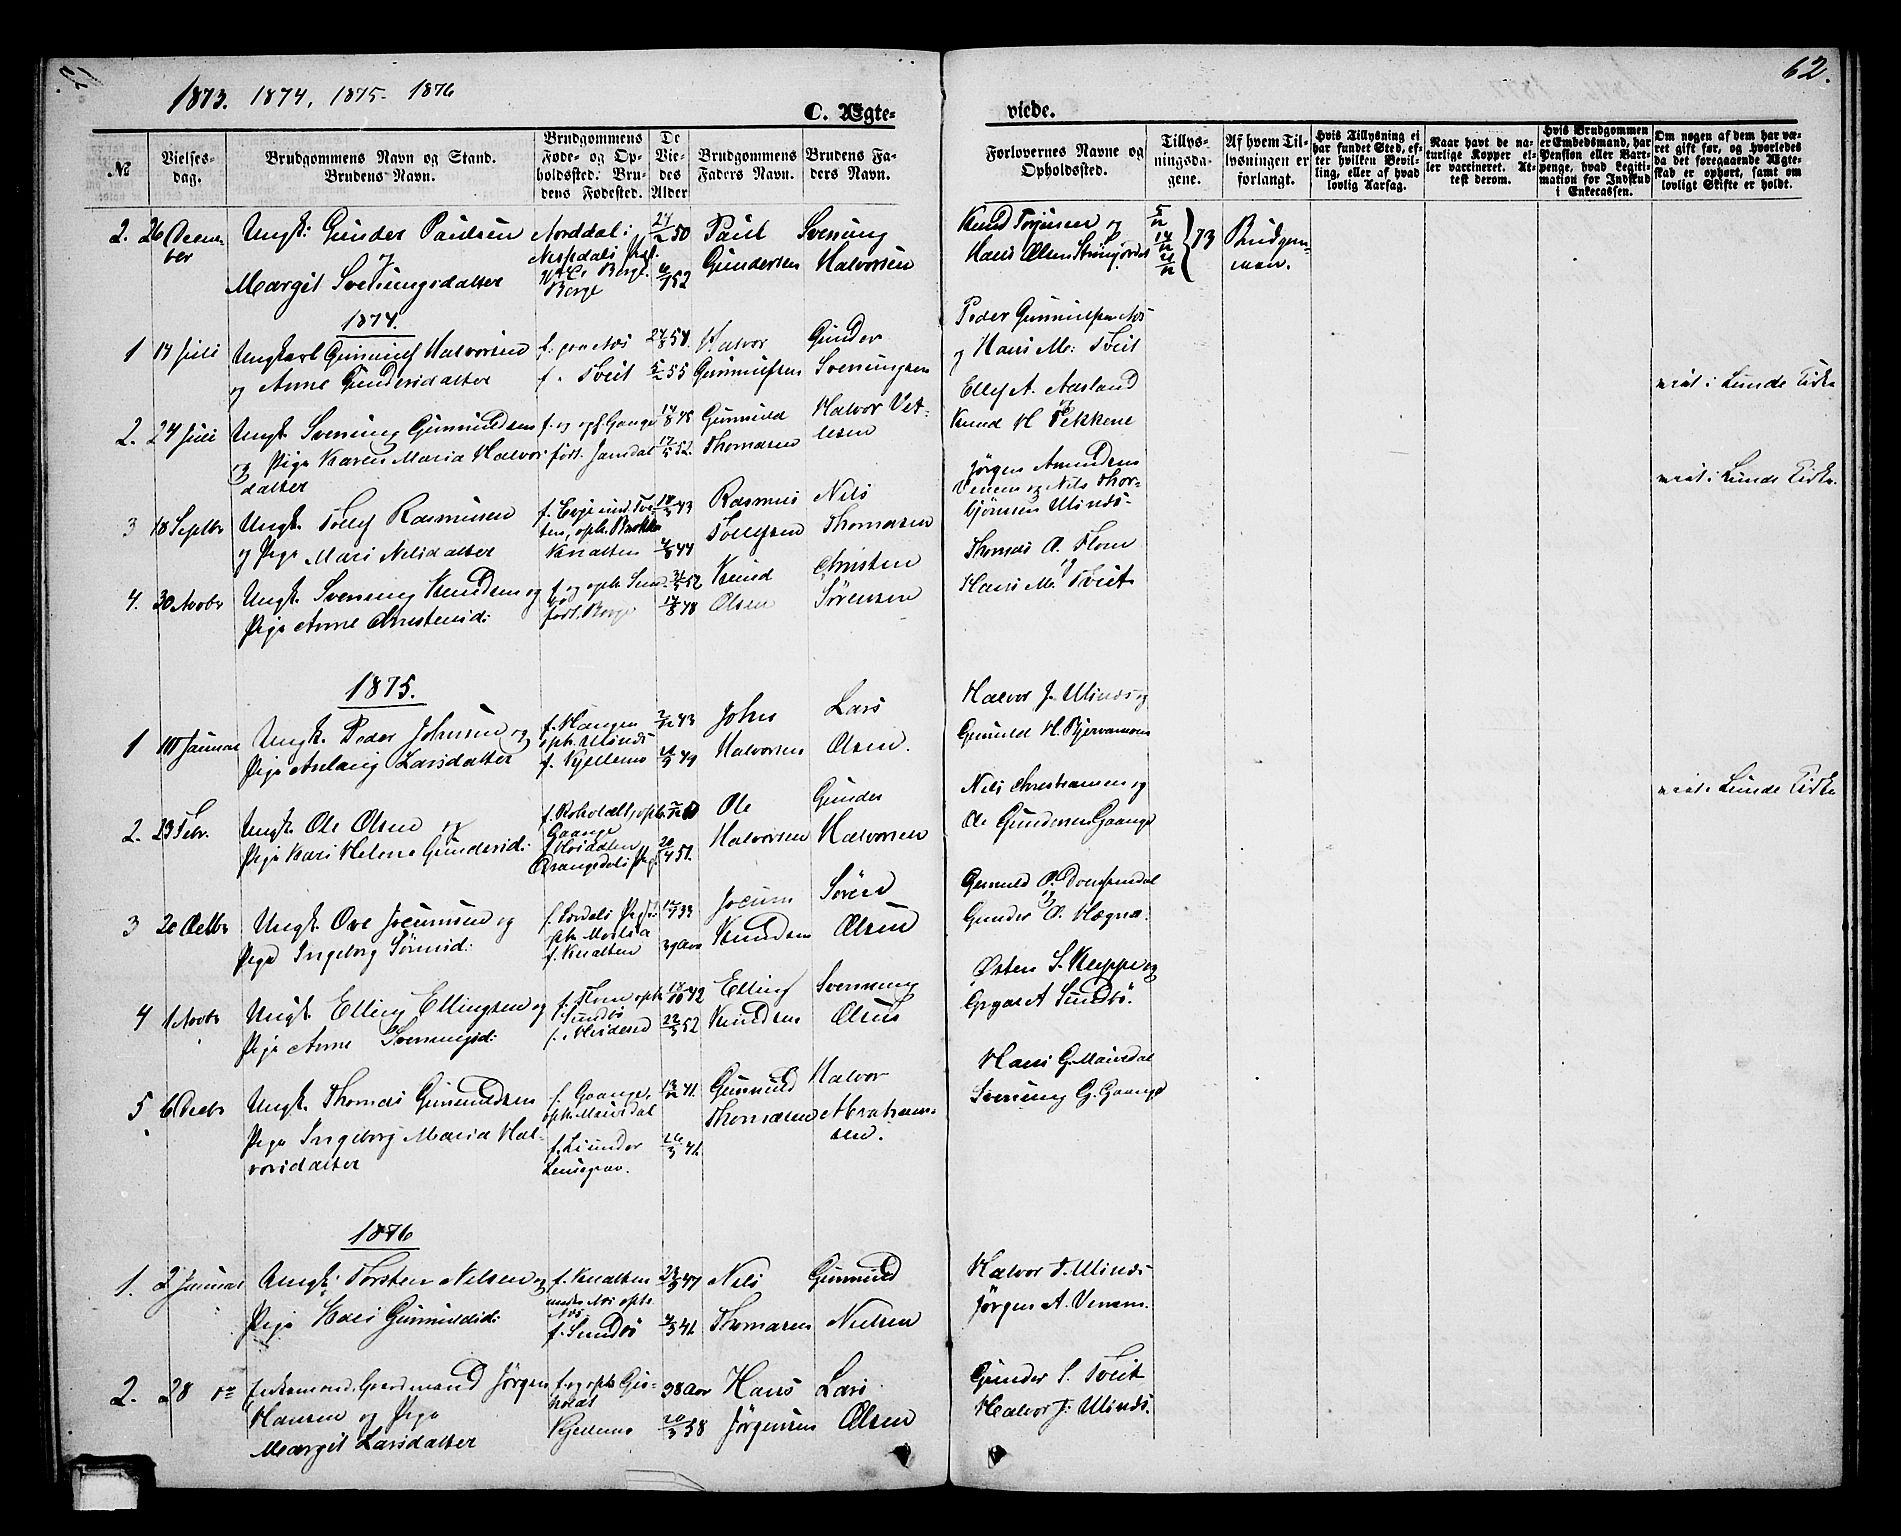 1873. 1874, 1875. 1876
62.
C. Ægte-
viede.
№
Vielses-
dag.
Brudgommens Navn og Stand.
Brudens Navn.
Brudgommens
Føde- og Op-
holdssted. Bru-
dens Fødested.
De
Vie-
des
Alder
Brudgommens
Faders Navn.
Brudens Fa-
ders Navn.
Forlovernes Navne og
Opholdssted.
Tillys-
ningsda-
gene.
Af hvem Til-
lysningen er
forlangt.
Hvis Tillysning ei
har fundet Sted, ef-
ter hvilken Bevil-
ling, eller af hvad
lovlig Aarsag.
Naar havt de na-
turlige Kopper el-
ler vaccineret. At-
test derom.
Hvis Brudgommen
er Embedsmand, har
Pension eller Vart-
penge, hvad Legiti-
mation for Indskud
i Enkecassen.
Om nogen af dem har væ-
ret gift før, og hvorledes
da det foregaaende Ægte-
skab er ophørt, samt om
lovligt Skifte er holdt.
2. 26 Decem-
ber
Ungk: Gunder Paulsen
Margit Svenungsdatter
Norddal i
Nissedals
Berge
24/2 50
52
Paul
Gundersen
Svenung
Halvorsen
Knud Torjusen og
Hans Olsen
5/12 14/12 21/12 } 73
Brudgom-
men.
1874.
1 14 Juli
Ungkarl Gunnulf Halvorsen
og Anne Gundersdatter
f. Næs
f. Tveit
27/8 51.
5/2 55
Halvor
Gunnulfsen
Gunder
Svenungsen
Peder Gunnulfsen Næs
og Hans M: Tveit
viet i Lunde Kirke
2. 24 Juli
Ungk. Svenung Gunnuldsen
og Pige Karen Maria Halvors-
datter
f. og oph. Gaange
født Jamsdal
17/8 48
17/5 52.
Gunnuld
Thomasen
Halvor Vet-
lesen
Ellef A. Aasland
og
Knud H Tekkene
viet i Lunde Kirke.
3 18 Septbr
Ungk. Tollef Rasmusen
og Pige Mari Nilsdatter
Knalten
18/5 43
44
Rasmus
Tollefsen
Nils
Thomasen
Jørgen Amundsen
Venem og Nils Thor-
bjønsen Ulinds.
4. 30 Novbr
Ungk. Svenung Knudsen og
Pige Anne Christensd:
f. og oph. Sund-
bø
født. Berge
31/5 52
17/8 48
Knud
Olsen
Christen
Sørensen
Thomas O. Flom
og
Hans M. Tveit
1875.
1 10 Januar
Ungk. Peder Johnsen og
Pige Anlaug Larsdatter
f. Haugen
oph. Ulinds
f. Kjellemo
43
49
John
Halvorsen
Lars
Olsen.
Halvor J. Ulinds og
Gunuld H. Bjervamoen
2. 23 Febr.
Ungk. Ole Olsen og
Pige Kari Helene Gundersd:
Gaange
Drangedals Prgj.
20/4 51.
Ole
Halvorsen
Gunder
Halvorsen
Nils Christiansen og
Ole Gundersen Gaange
viet i Lunde Kirke
3 20 Octbr
Ungk. Ove Jocumsen og
Pige Ingeborg Sørensd:
f. Knalten
33
39 Aar
Jocum
Knudsen
Søren
Olsen
Gunuld O.
og
Gunder O. Hægna.
4 1 Novbr
Ungk. Elling Ellingsen og
Pige Anne Svenungsd:
f. Flom oph.
Sundbø
42
22/3 52
Elling
Knudsen
Svenung
Olsen
Østen S. Kleppe og
A Sundbø.
5 6 Decbr
Ungk. Thomas Gunnuldsen
Pige Ingeborg Maria Hal-
vorsdatter
f. Gaange,
oph. Mausdal
13/12 41.
26/3 41
Gunnuld
Thomasen
Halvor
Abraham-
sen.
Hans G. Mausdal
Svenung G. Gaange
1876
1. 2 Januar
Ungk: Torsten Nilsen og
Pige Kari Gunnuldsd:
f. Knalten
under Næs oph.
Næs
f. Sundbø
28/3 47
41
Nils
Thomasen
Gunnuld
Nielsen
Halvor J. Ulinds
Jørgen A. Venem.
2. 28 do
Enkemand, Gaardmand Jørgen
Hansen og Pige
Margit Larsdatter
f. og oph. Gis-
holdt
Kjellemo
38 Aar
20/3 38
Hans
Jørgensen
Lars
Olsen
Gunder S. Tveit
Halvor J: Ulinds.